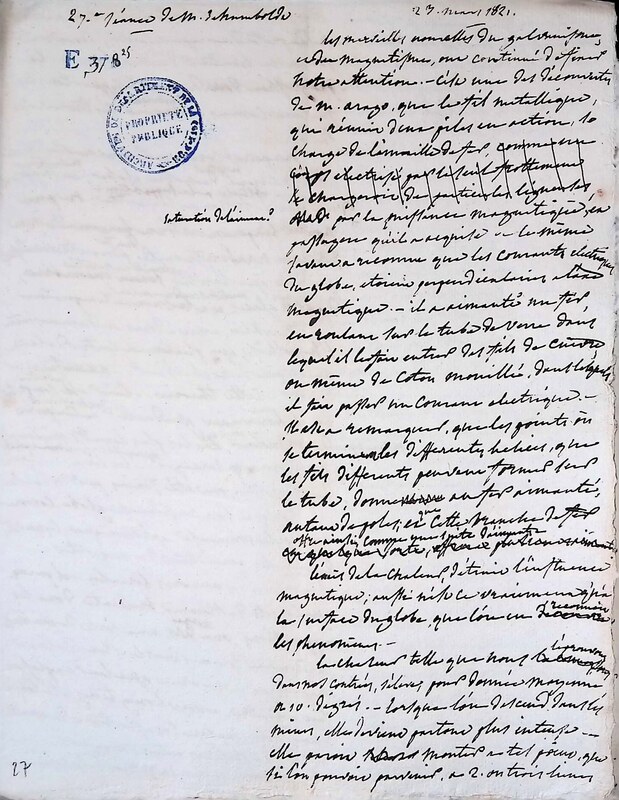 27.e séance de M. de humboldt
23. mars 1821.
E 378 25
ARCHIVES DU DÉPARTEMENT DE LA CÔTE-D'OR
PROPRIÉTÉ PUBLIQUE
les merveilles nouvelles du galvanisme,
et du magnétisme, ont continué de fixer
notre attention. – C'est une des découvertes
de m. arago, que le fil metallique,
qui réunit deux piles en action, se
charge de limaille de fer comme un
corps electrisé par le seul frottement
se chargeroit de particules legeres
par la puissance magnetique, en
passagere qu'il a acquise – le même
savant a reconnu que les courants electriques
du globe, etoient perpendiculaires à l'axe
magnetique. – il a aimanté un fer
en roulant sur le tube de verre dans
lequel il le fait entrer des fils de cuivre
ou même de coton mouillé, dans lesquels
il fait passer un courant electrique. –
il a remarqué, que les points où
se terminent les differentes helices, que
les fils differents peuvent former sur
le tube, donnent au fer aimanté,
autant de poles, et que cette branche de fer
offre ainsi comme une suite d'aimants
L'excès de la chaleur, détruit l'influence
magnetique; aussi n'est-ce vraiment qu'à
la surface du globe, que l'on en reconnoit
les phenomenes. –
la chaleur telle que nous l'éprouvons
dans nos contrées, s'élève pour donnée moyenne
à 10. dégrés. – Lorsque l'on descend dans les
mines, elle devient partout plus intense –
elle paroit monter à tel point, que
si l'on pouvoit parvenir, à 2. ou trois lieues
27